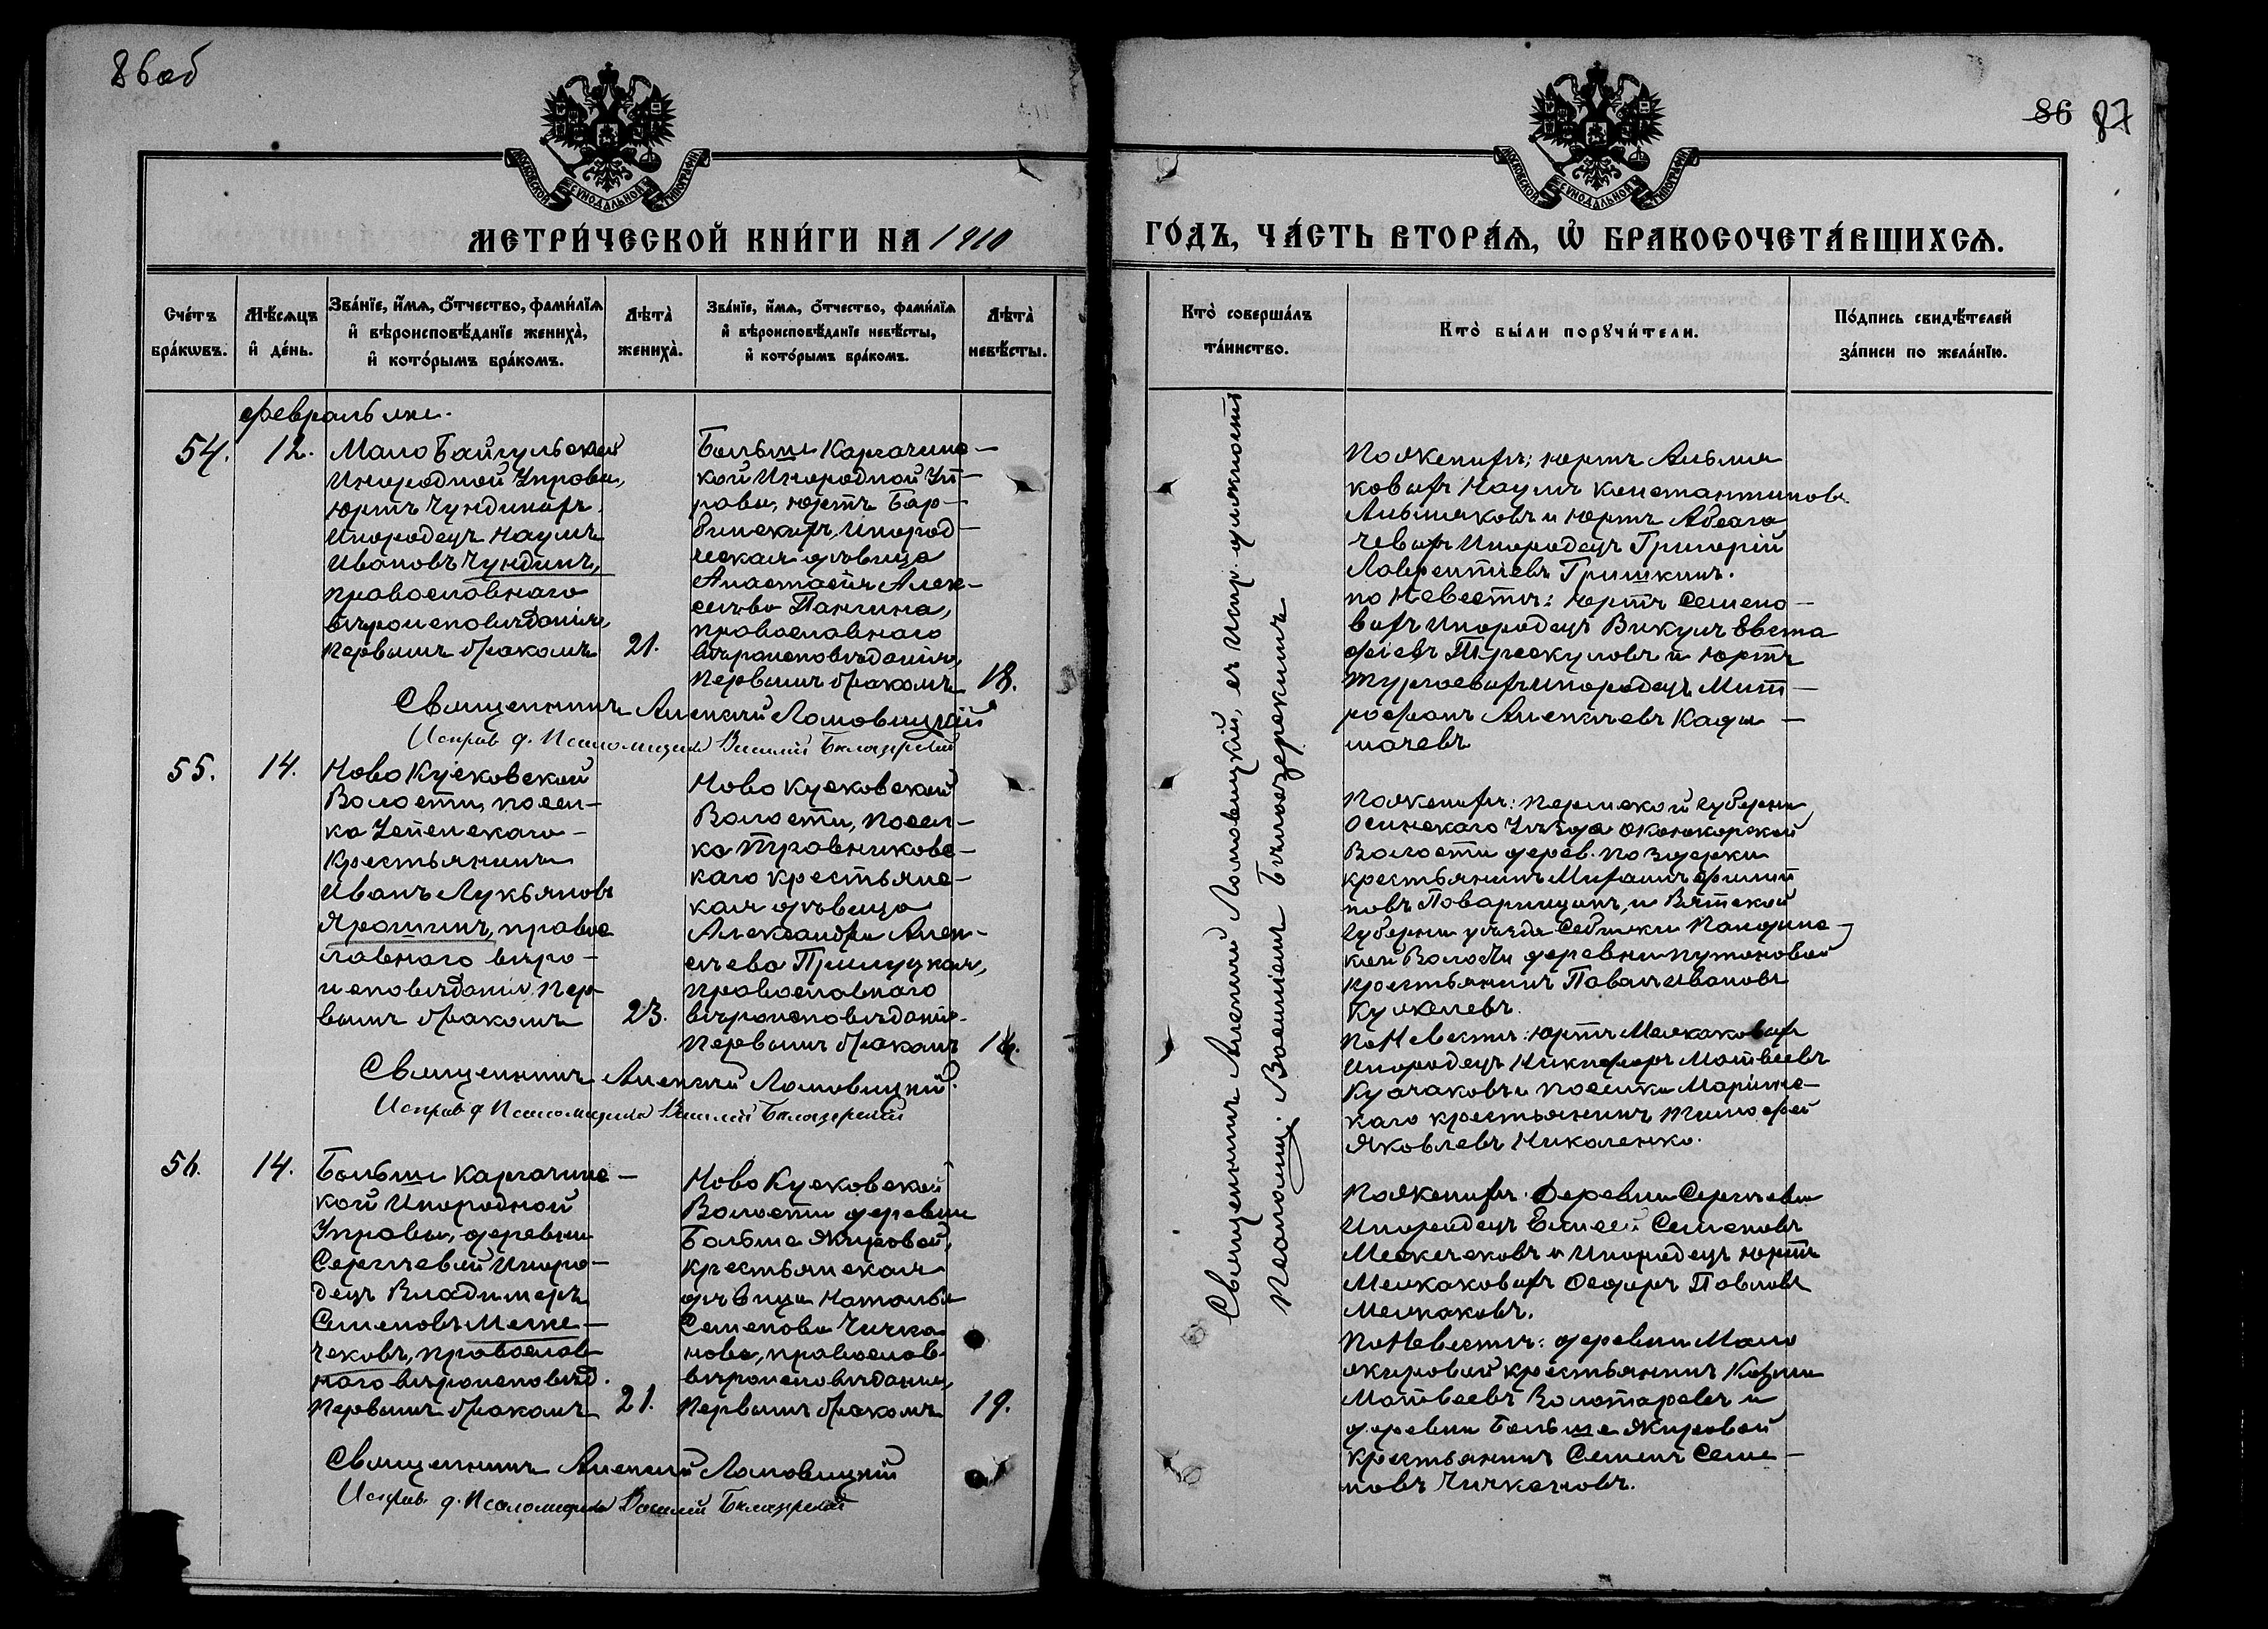 86об
МОСКОВСКОЙ СѴНОДАЛЬНОЙ ТИПОГРАФІИ
МЕТРИ́ЧЕСКОЙ КНИ́ГИ НА 1910
Сче́тъ бра́кѡвъ.
Мѣ́сѧцъ и҆ де́нь.
Зва́нїе, и҆́мѧ, ѻ҆́тчество, фами́лїѧ
и҆ вѣроисповѣ́данїе жениха̀,
и҆ кото́рымъ бра́комъ.
Лѣта̀ жениха̀.
Зва́нїе, и҆́мѧ, ѻ҆́тчество, фами́лїѧ
и҆ вѣроисповѣ́данїе невѣ́сты,
и҆ кото́рымъ бра́комъ.
Лѣта̀ невѣ́сты.
февраль
54.
12.
Мало Байгульской
Инородной Управы,
юртъ Чундиныхъ
Инородецъ Наумъ
Ивановъ Чундинъ,
православнаго
вѣроисповѣданія,
первымъ бракомъ
21.
Больше Каргачинс-
кой Инородной Уп-
равы, юртъ Бар-
бинскихъ, Инород-
ческая дѣвица
Анастасія Алек-
сѣева Пангина,
православнаго
вѣроисповѣданія,
первымъ бракомъ
18.
Священникъ Алексій Ломовицкій
Исправ. д. Псаломщика Василій Бѣлозерскій
55.
14.
Ново Кусковской
Волости, посел-
ка Успенскаго
Крестьянинъ
Иванъ Лукьяновъ
Ярошинъ, правос-
лавнаго вѣро-
исповѣданія, пер-
вымъ бракомъ
23.
Ново Кусковской
Волости, посел-
ка Травниковс-
каго крестьянс-
кая дѣвица
Александра Алек-
сѣева Прилуцкая,
православнаго
вѣроисповѣданія
первымъ бракомъ
Священникъ Алексій Ломовицкій.
Исправ. д. Псаломщика Василій Бѣлозерскій
56.
14.
Больше Каргачинс-
кой Инородной
Управы, деревни
Сергѣевой Иноро-
децъ Владимеръ
Семеновъ Меске-
чековъ, православ-
наго вѣроисповѣд.
первымъ бракомъ
21.
Ново Кусковской
Волости деревни
Больше Жировой,
крестьянская
дѣвица Наталья
Семенова Чичка-
нова, православ.
вѣроисповѣданія,
первымъ бракомъ
19.
Священникъ Алексій Ломовицкій
Исправ. д. Псаломщика Василій Бѣлозерскій
86 87
МОСКОВСКОЙ СѴНОДАЛЬНОЙ ТИПОГРАФІИ
ГО́ДЪ, ЧА́СТЬ ВТОРА́Ѧ, Ѡ҆ БРАКОСОЧЕТА́ВШИХСѦ.
Кто̀ соверша́лъ
та́инство.
Кто̀ бы́ли порꙋчи́тели.
По́дпись свидѣ́телей
за́писи по жела́нїю.
Священникъ Алексій Ломовицкій, съ Испр. должность
Псаломщ. Василіемъ Бѣлозерскимъ
По женихѣ: юртъ Альмя-
ковыхъ Наумъ Константиновъ
Альмяковъ и юртъ Абсага-
чевыхъ Инородецъ Григорій
Лаврентіевъ Гришкинъ.
по Невестѣ: юртъ Семено-
выхъ Инородецъ Викулъ Евста-
фіевъ Турскуловъ и юртъ
Тургаевыхъ инородецъ Мит-
рофанъ Алексѣевъ Кады-
шачевъ
По женихѣ: Пермской Губерни
Осинскаго Уѣзда
Волости дерев. Поздерки
крестьянинъ Филип-
повъ Поварницынъ, и Вятской
Губерни уѣзда
кой Волости деревни
крестьянинъ Павелъ Ивановъ
По Невестѣ: юртъ Мелкаковыхъ
инородецъ Никифоръ Матвеевъ
Кучаковъ и поселка Маріинс-
каго крестьянинъ Тимофей
Яковлевъ Николенко.
По женихѣ. Деревни Сергѣевы
Инородецъ Елисей Семеновъ
Мескечековъ и Инородецъ юртъ
Мелкаковыхъ Федоръ Павловъ
Мелкаковъ.
По Невестѣ: деревни Мало
Жировой крестьянинъ Козьма
Матвеевъ Золотаревъ и
деревни Больше Жировой
крестьянинъ Семенъ Семе-
новъ Чичкановъ.